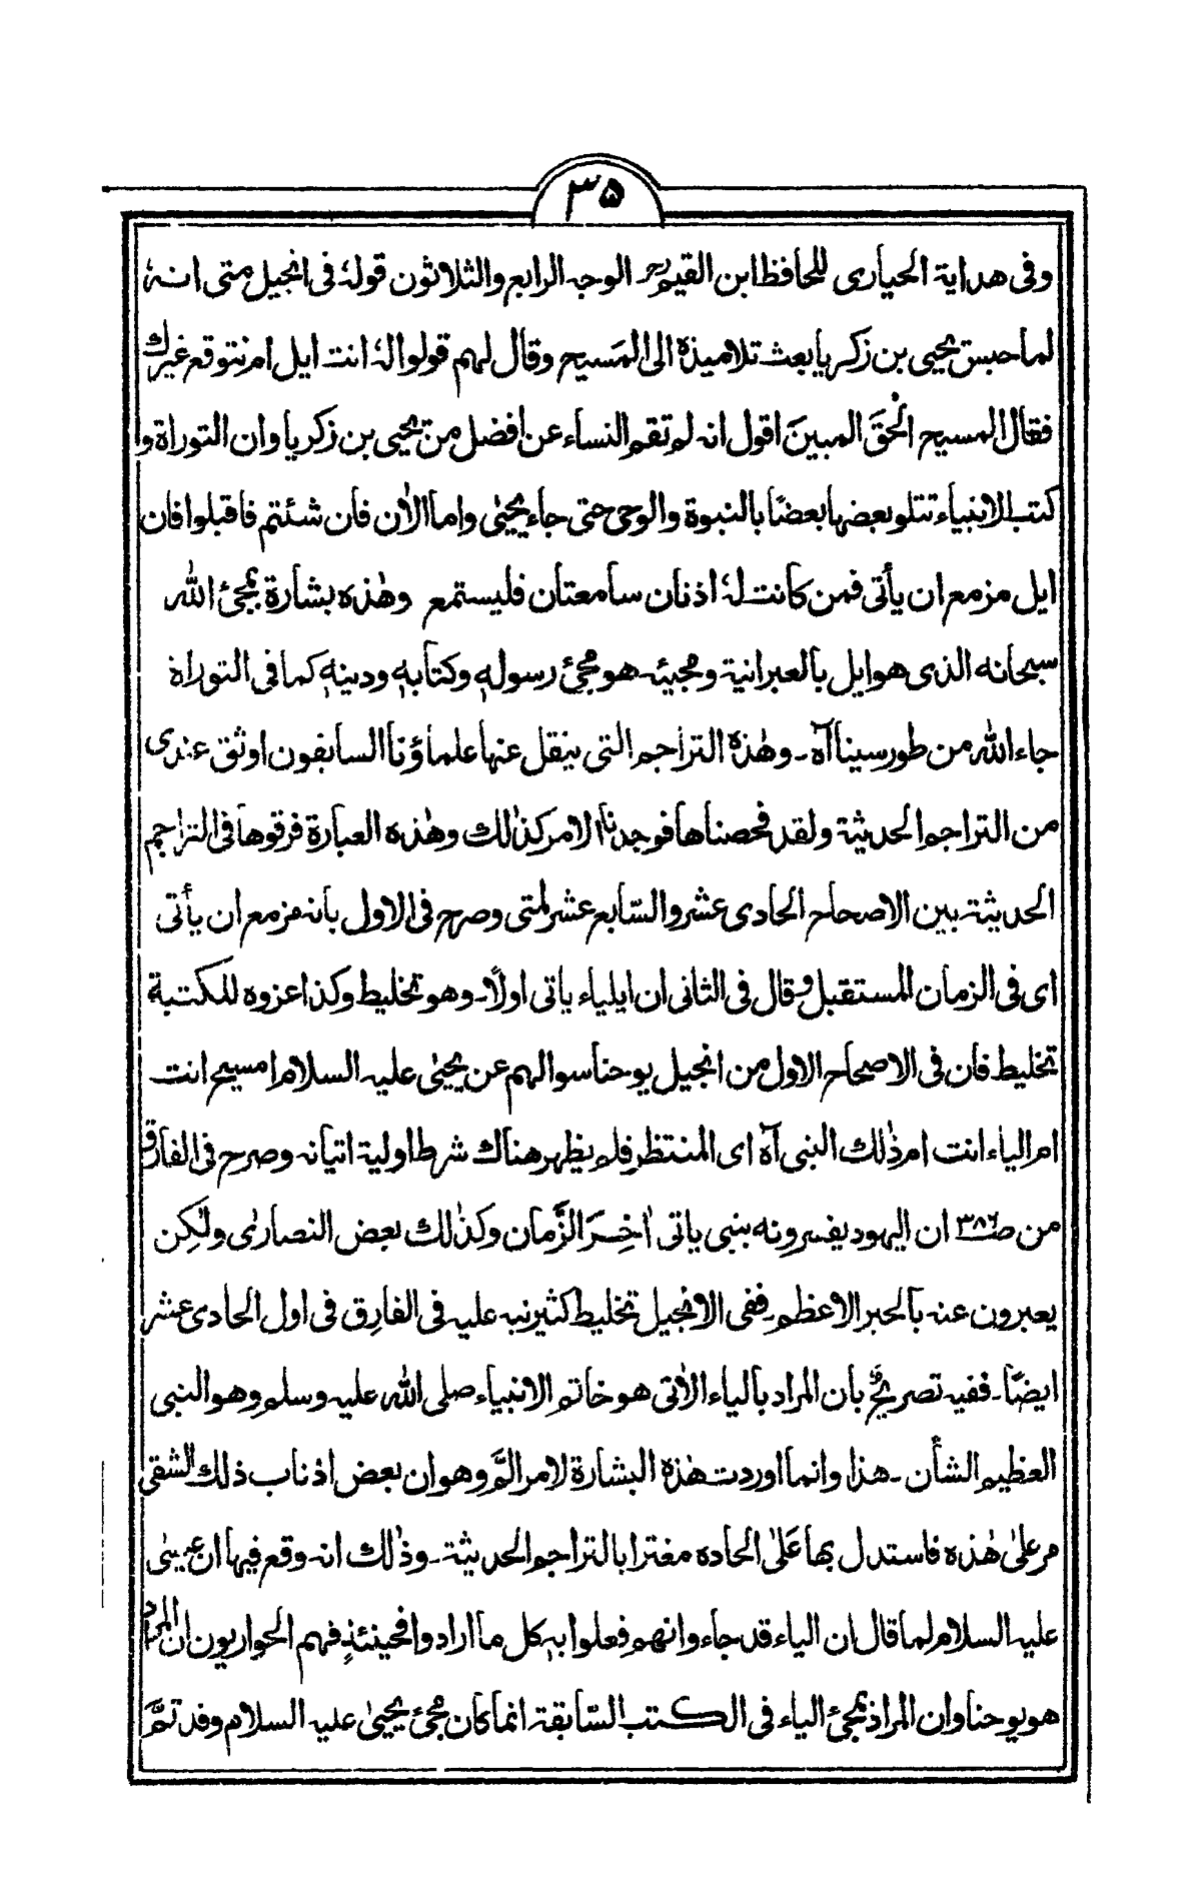 ۳۵
وفی هدایة الحیاری للحافظ ابن القیم رح الوجه الرابع والثلاثون قولهٗ فی انجیل متی انهٗ
لما حبس یحیی بن زکریا بعث تلامیذه الی المَسیح وقال لهم قولوا لهٗ انت ایل ام نتوقع غیرك
فقال المسیح الْحقَ المبینَ اقول انه لم تقم النساء عن افضل من یحیی بن زکریا وان التوراة و
کتب الانبیاء تتلو بعضها بعضًا بالنبوة والوحی حتی جاء یحییٰ واما الاٰن فان شئتم فاقبلوا فان
ایل مزمع ان یأتی فمن کانت لهٗ اذنان سامعتان فلیستمع وهٰذه بشارة بمجئ الله
سبحانه الذی هو ایل بالعبرانیة ومجیئه هو مجئ رسولهٖ وکتابهٖ ودینهٖ کما فی التوراة
جاء الله من طور سینا آه ـ وهٰذه التراجم التی ینقل عنها علماؤنا السابقون اوثق عندی
من التراجم الحدیثة ولقد فحصناها فوجدنا الامر کذٰلك وهٰذه العبارة فرقوها فی التراجم
الحدیثة بین الاصحاح الحادی عشر والسّابع عشر لمتی وصرح فی الاول بانه مزمع ان یأتی
ای فی الزمان المستقبل وقال فی الثانی ان ایلیاء یاتی اولًا ـ وهو تخلیط وکذا عزوه للکتبة
تخلیط فان فی الاصحاح الاول من انجیل یوحنا سوالهم عن یحییٰ علیه السلام امسیح انت
ام الیاء انت ام ذٰلك النبی آه ای المنتظر فلم یظهر هناك شرط اولیة اتیانه وصرح فی الفارق
من صـ۳۸۶ ان الیهود یفسرونه بنبی یاتی اٰخِرَ الزَّمان وکذٰلك بعض النصاریٰ ولٰکِن
یعبرون عنه بالحبر الاعظم ـ ففی الانجیل تخلیط کثیر نبه علیه فی الفارِق فی اول الحادی عشر
ایضًا ـ ففیه تصریحٌ بان المراد بالیاء الاٰتی هو خاتم الانبیاء صلی الله علیه وسلم وهو النبی
العظیم الشأن ـ هذا وانما اوردت هٰذه البشارة لامر المَّ وهو ان بعض اذناب ذلك الشقی
مر علیٰ هٰذه فاستدل بها عَلیٰ الحاده مغترا بالتراجم الحدیثة ـ وذٰلك انه وقع فیها ان عیسٰی
علیه السلام لما قال ان الیاء قد جاء وانهم فعلوا بهٖ کل ما ارادوا فحینئذٍ فهم الحواریون ان المراد
هو یوحنا وان المراد بمجئ الیاء فی الکتب السّابقة انما کان مجئ یحییٰ علیه السلام وقد تمَّ